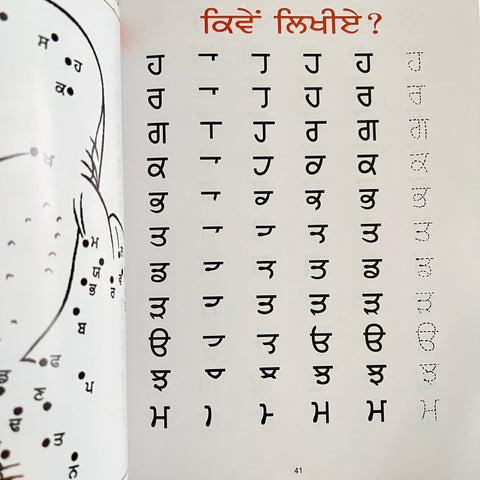 ਸ
ਹ
ਕ
ਖ
ਮ
ਯ
ਭ
ਰ
ਬ
ਫ
ਪ
ਣ
ਤ
ਨ
ਕਿਵੇਂ ਲਿਖੀਏ?
ਹ ਹ ਹ ਹ
ਰ ਹ ਰ ਰ
ਗ ਰ ਗ ਗ
ਕ ਹ ਕ ਕ
ਭ ਭ ਭ
ਤ ਤ ਤ
ਡ ਤ ਡ ਡ
ੜ ਤ ੜ ੜ ੜ
ੳ ੳ ੳ
ਝ ਝ ਝ
ਮ ਮ ਮ ਮ
41